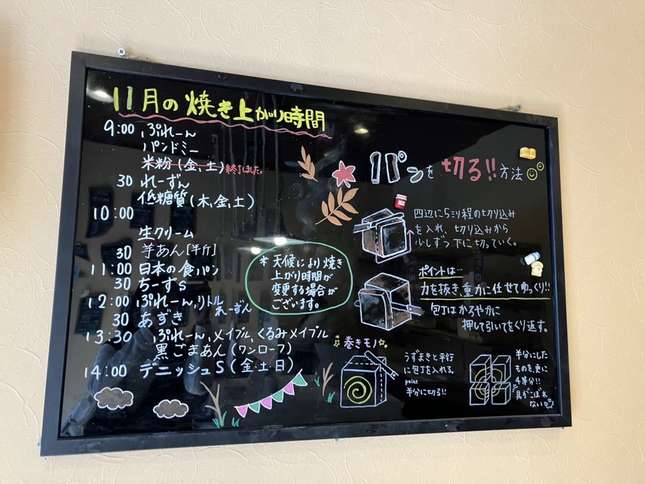 11月の焼き上がり時間
9:00 ぷれーん
パンドミー
米粉(金,土)終了しました。
30 れーずん
低糖質(木,金,土)
10:00
生クリーム
30 芋あん[半斤]
11:00 日本の食パン
30 ちーずS
12:00 ぷれーん,リトルれーずん
30 あずき
13:30 ぷれーん,メイプル,くるみメイプル
黒ごまあん(ワンローフ)
14:00 デニッシュS(金土日)
*天候により焼き
上がり時間が
変更する場合が
ございます。
パンを切る!!方法
四辺に5ミリ程の切り込み
を入れ、切り込みから
少しずつ下に切っていく。
ポイントは…
力を抜き、重力に任せてゆっくり!!
包丁はかろやかに
押して引いてをくり返す。
巻きモノ
うずまきと平行
に包丁を入れる。
point
半分に切る!!
半分にした
ものを、更に
4等分!!
具がこぼれ
ない